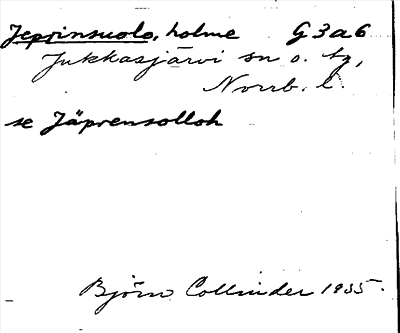 Jeprinsuolo, holme G3a6
Jukkasjärvi sn o. tg,
Norrb. l.
se Jäprensolloh
Björn Collinder 1935.